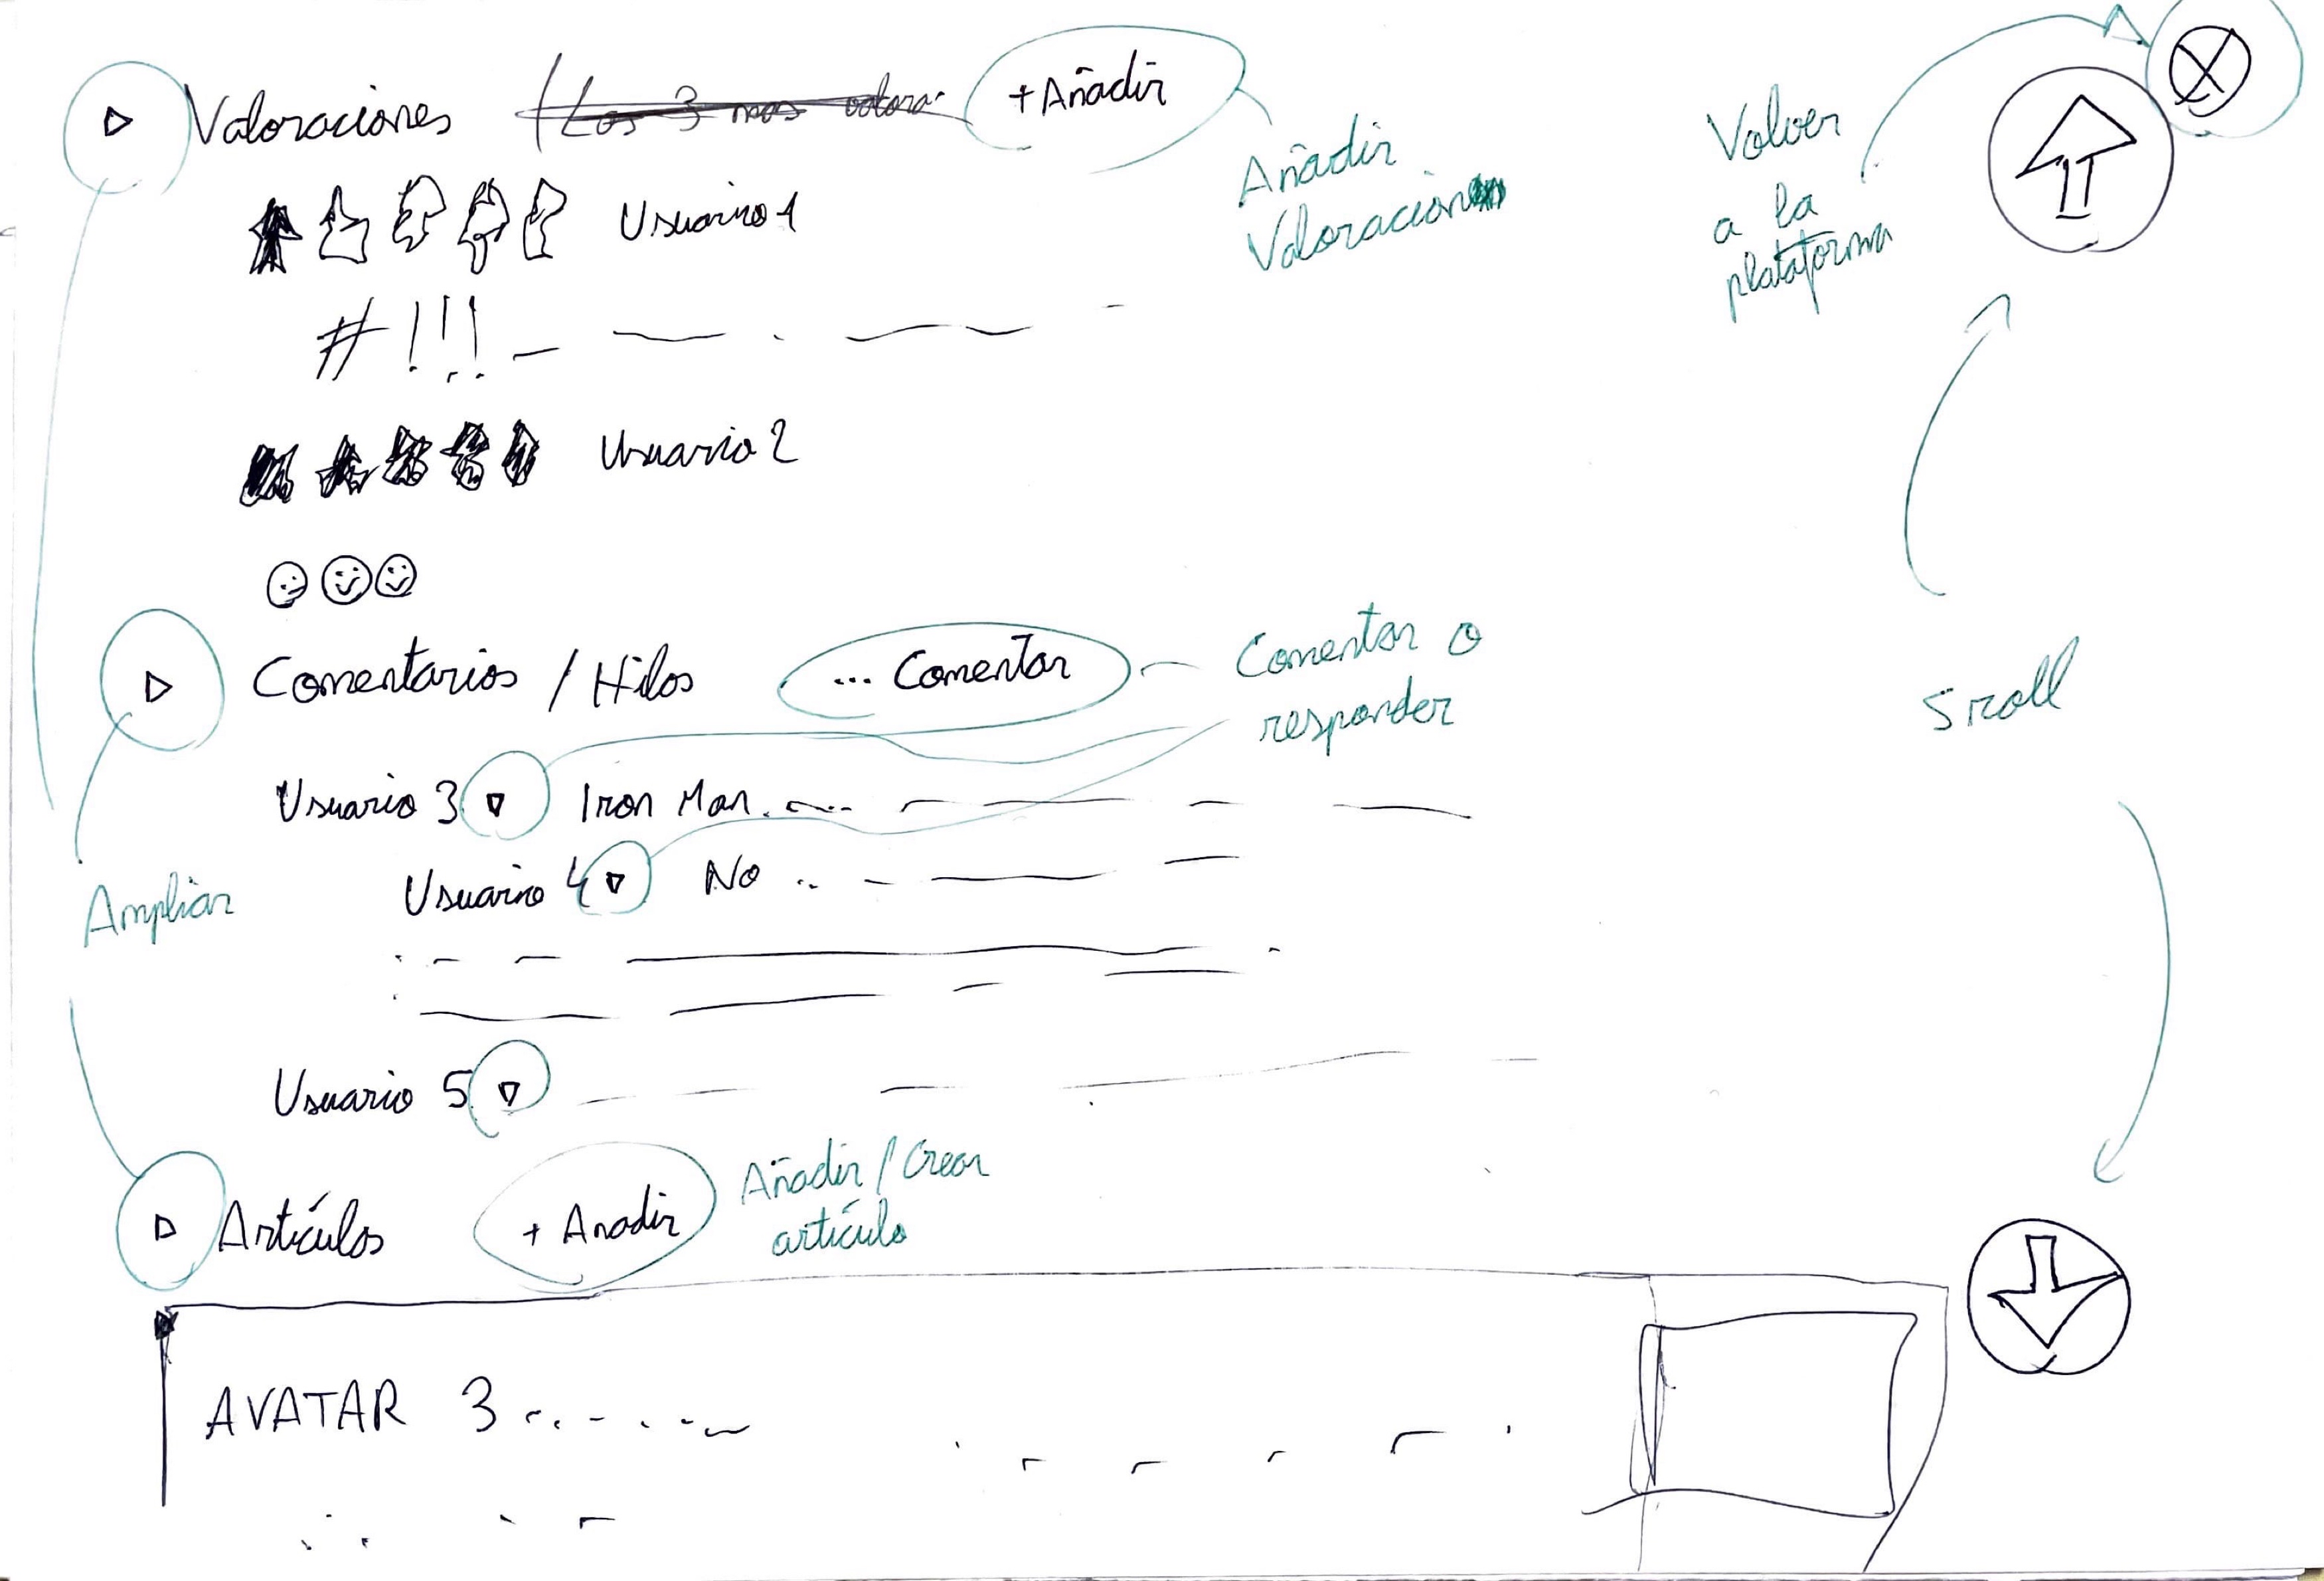 Valoraciones (Los 3 mas valora. + Añadir
Añadir
Valoración
Volver
a la
plataforma
Usuario 1
# ! ! !
Usuario 2
Comentarios / Hilos ... Comentar
Comentar o
responder
Sroll
Usuario 3 Iron Man.
Usuario 4 No ..
Ampliar
Usuario 5
Artículos + Anadir
Añadir / Crear
artículo
AVATAR 3